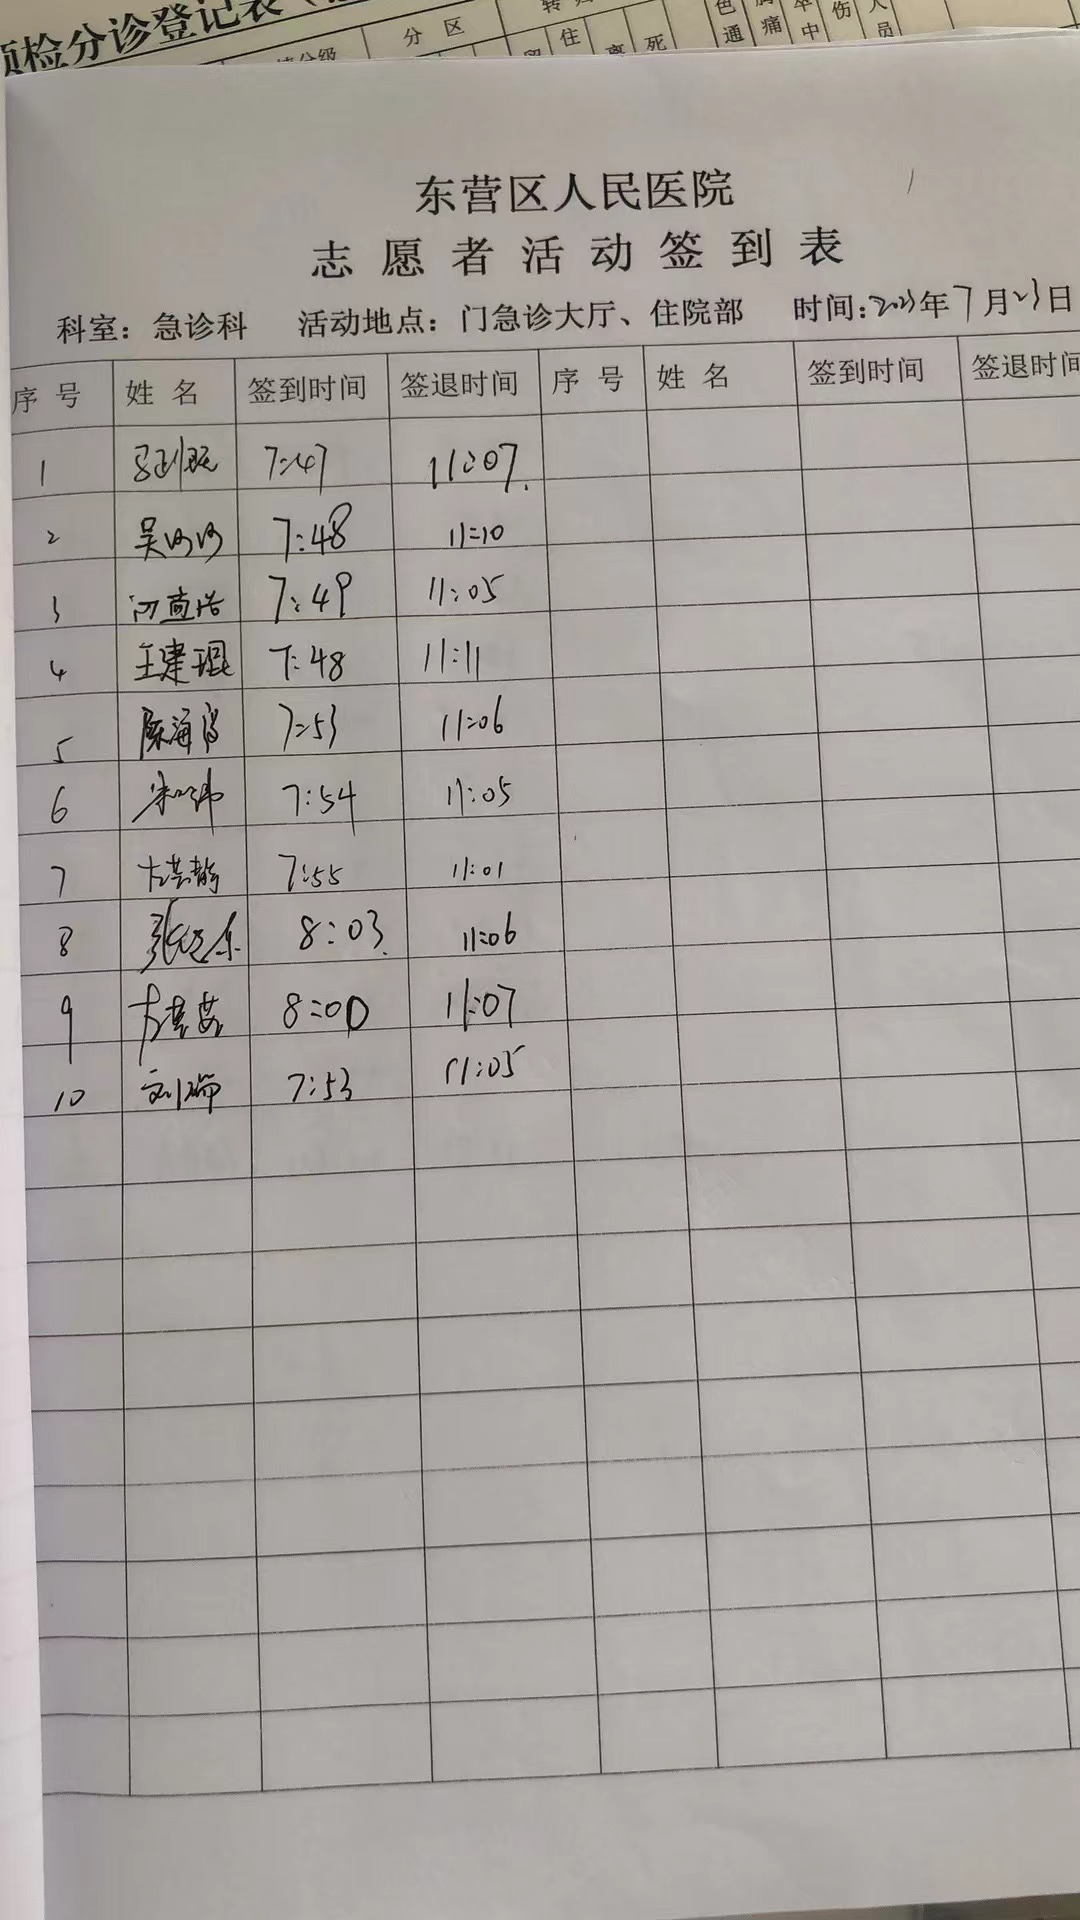 预检分诊登记表
分级 分 区 转归 住 离 死 色 通 痛 卒 中 伤 人 员
东营区人民医院
志愿者活动签到表
科室：急诊科 活动地点：门急诊大厅、住院部 时间：2023年7月23日
序号 姓名 签到时间 签退时间 序号 姓名 签到时间 签退时间
1 7:47 11:07
2 吴 7:48 11:10
3 7:49 11:05
4 王建琨 7:48 11:11
5 陈海 7:53 11:06
6 7:54 11:05
7 7:55 11:01
8 张 8:03 11:06
9 8:00 11:07
10 刘瑞 7:53 11:05